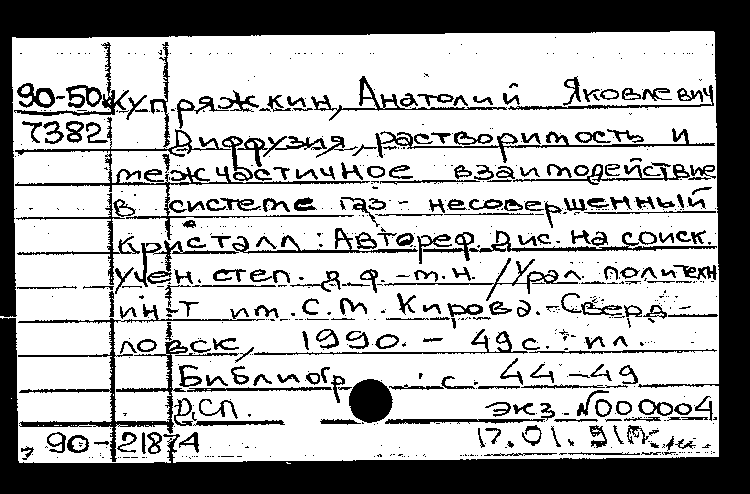 90-50 Купряжкин, Анатолий Яковлевич
7382 Диффузия, растворимость и
межчастичное взаимодействие
в системе газ - несовершенный
кристалл : Автореф. дис. на соиск.
учен. степ. д. ф.-м.н. / Урал. политехн
ин-т им. С.М. Кирова. - Сверд-
ловск, 1990. - 49 с. : ил.
Библиогр. : с. 44-49
ДСП. экз. N000004
90-21874 17.01.91